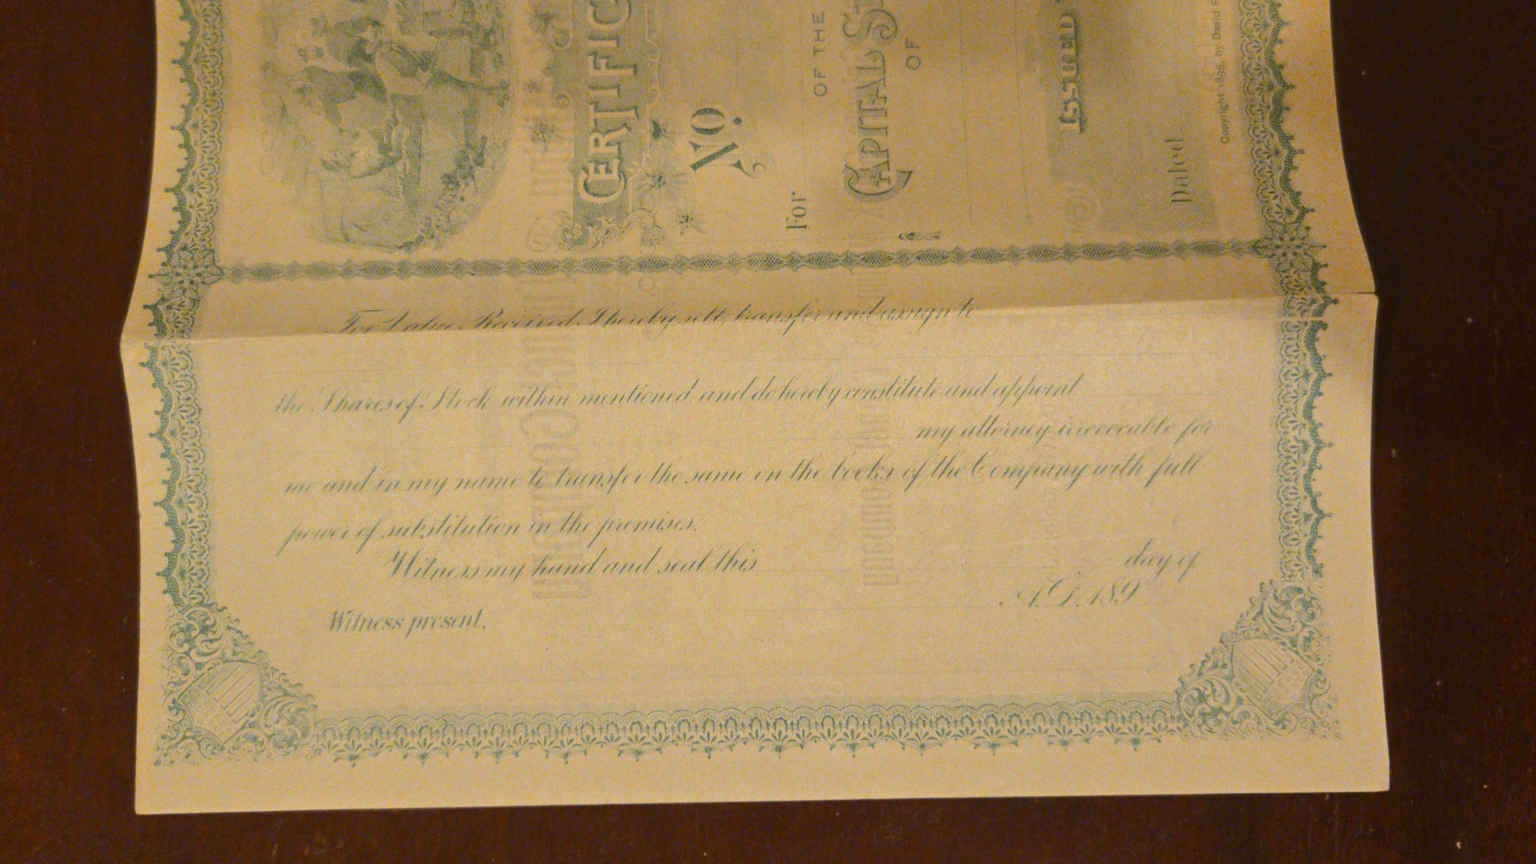 CERTIFIC
No.
For
OF THE
CAPITAL S
OF
ISSUED
Dated
Copyright by
For Value Received, I hereby sell, transfer and assign to
the Shares of Stock within mentioned and do hereby constitute and appoint
my attorney irrevocable for
me and in my name to transfer the same on the books of the Company with full
power of substitution in the premises.
Witness my hand and seal this day of
A.D. 189
Witness present.